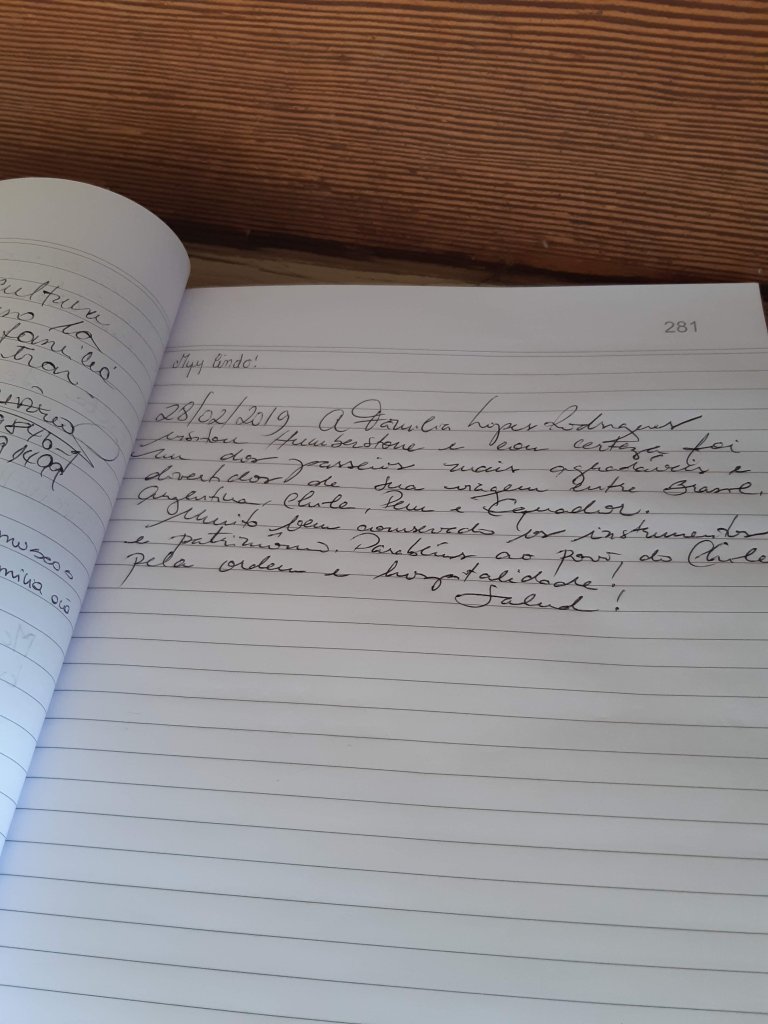 cultura
la
familia
281
Myy lindo!
28/02/2019 A Familia Lopes Rodrigues
visitou Humberstone e com certeza foi
um dos passeios mais agradáveis e
divertidos de sua viagem entre Brasil,
Argentina, Chile, Peru e Equador.
Muito bem conservado os instrumentos
e patrimônio. Parabéns ao povo do Chile
pela ordem e hospitalidade!
Salud!
museo